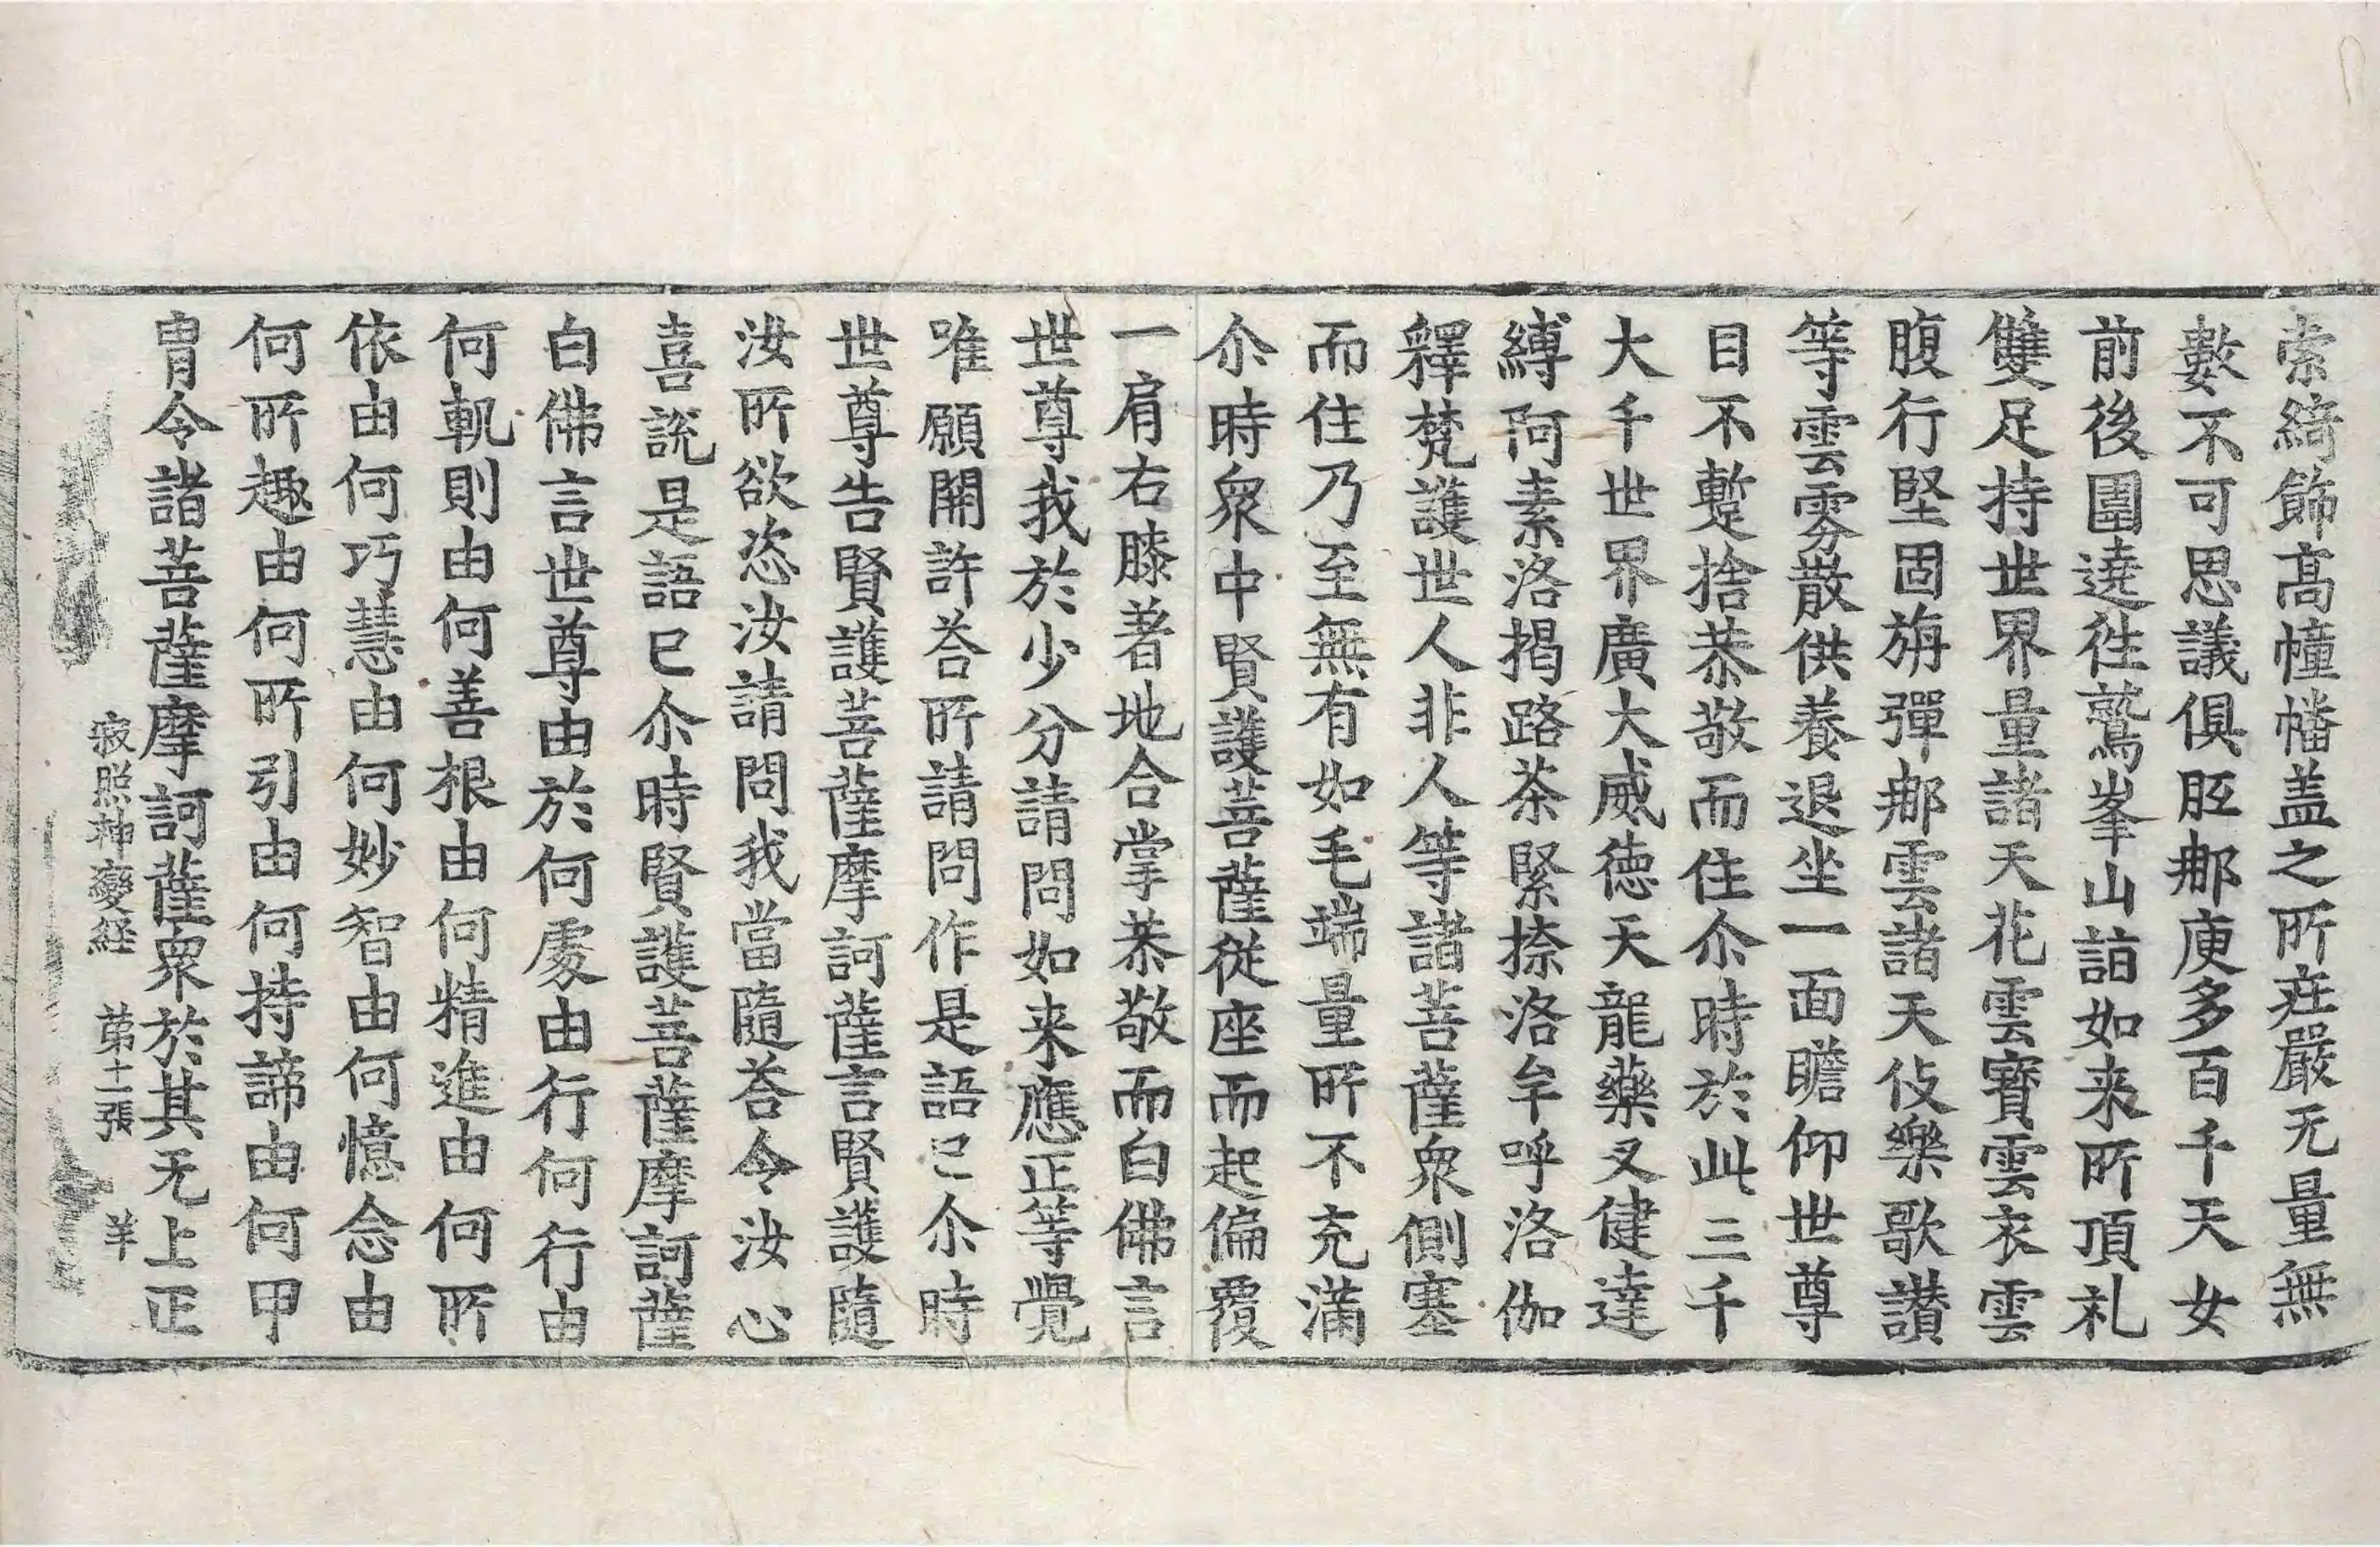 索綺飾髙幢幡盖之所莊嚴无量無
數不可思議俱胝那庾多百千天女
前後圍遶徃鷲峯山詣如来所頂礼
雙足持世界量諸天花雲寶雲衣雲
腹行堅固旃彈那雲諸天伎樂歌讃
等雲雰散供養退坐一面瞻仰世尊
目不蹔捨恭敬而住尒時於此三千
大千世界廣大威德天龍藥叉健達
縛阿素洛揭路茶緊捺洛牟呼洛伽
釋梵護世人非人等諸菩薩衆側塞
而住乃至無有如毛端量所不充滿
尒時衆中賢護菩薩從座而起偏覆
一肩右膝著地合掌恭敬而白佛言
世尊我於少分請問如来應正等覺
唯願開許荅所請問作是語已尒時
世尊告賢護菩薩摩訶薩言賢護隨
汝所欲恣汝請問我當隨荅令汝心
喜說是語已尒時賢護菩薩摩訶薩
白佛言世尊由於何處由行何行由
何軌則由何善根由何精進由何所
依由何巧慧由何妙智由何憶念由
何所趣由何所引由何持諦由何甲
冑令諸菩薩摩訶薩衆於其无上正
寂照神變経 第十二張 羊